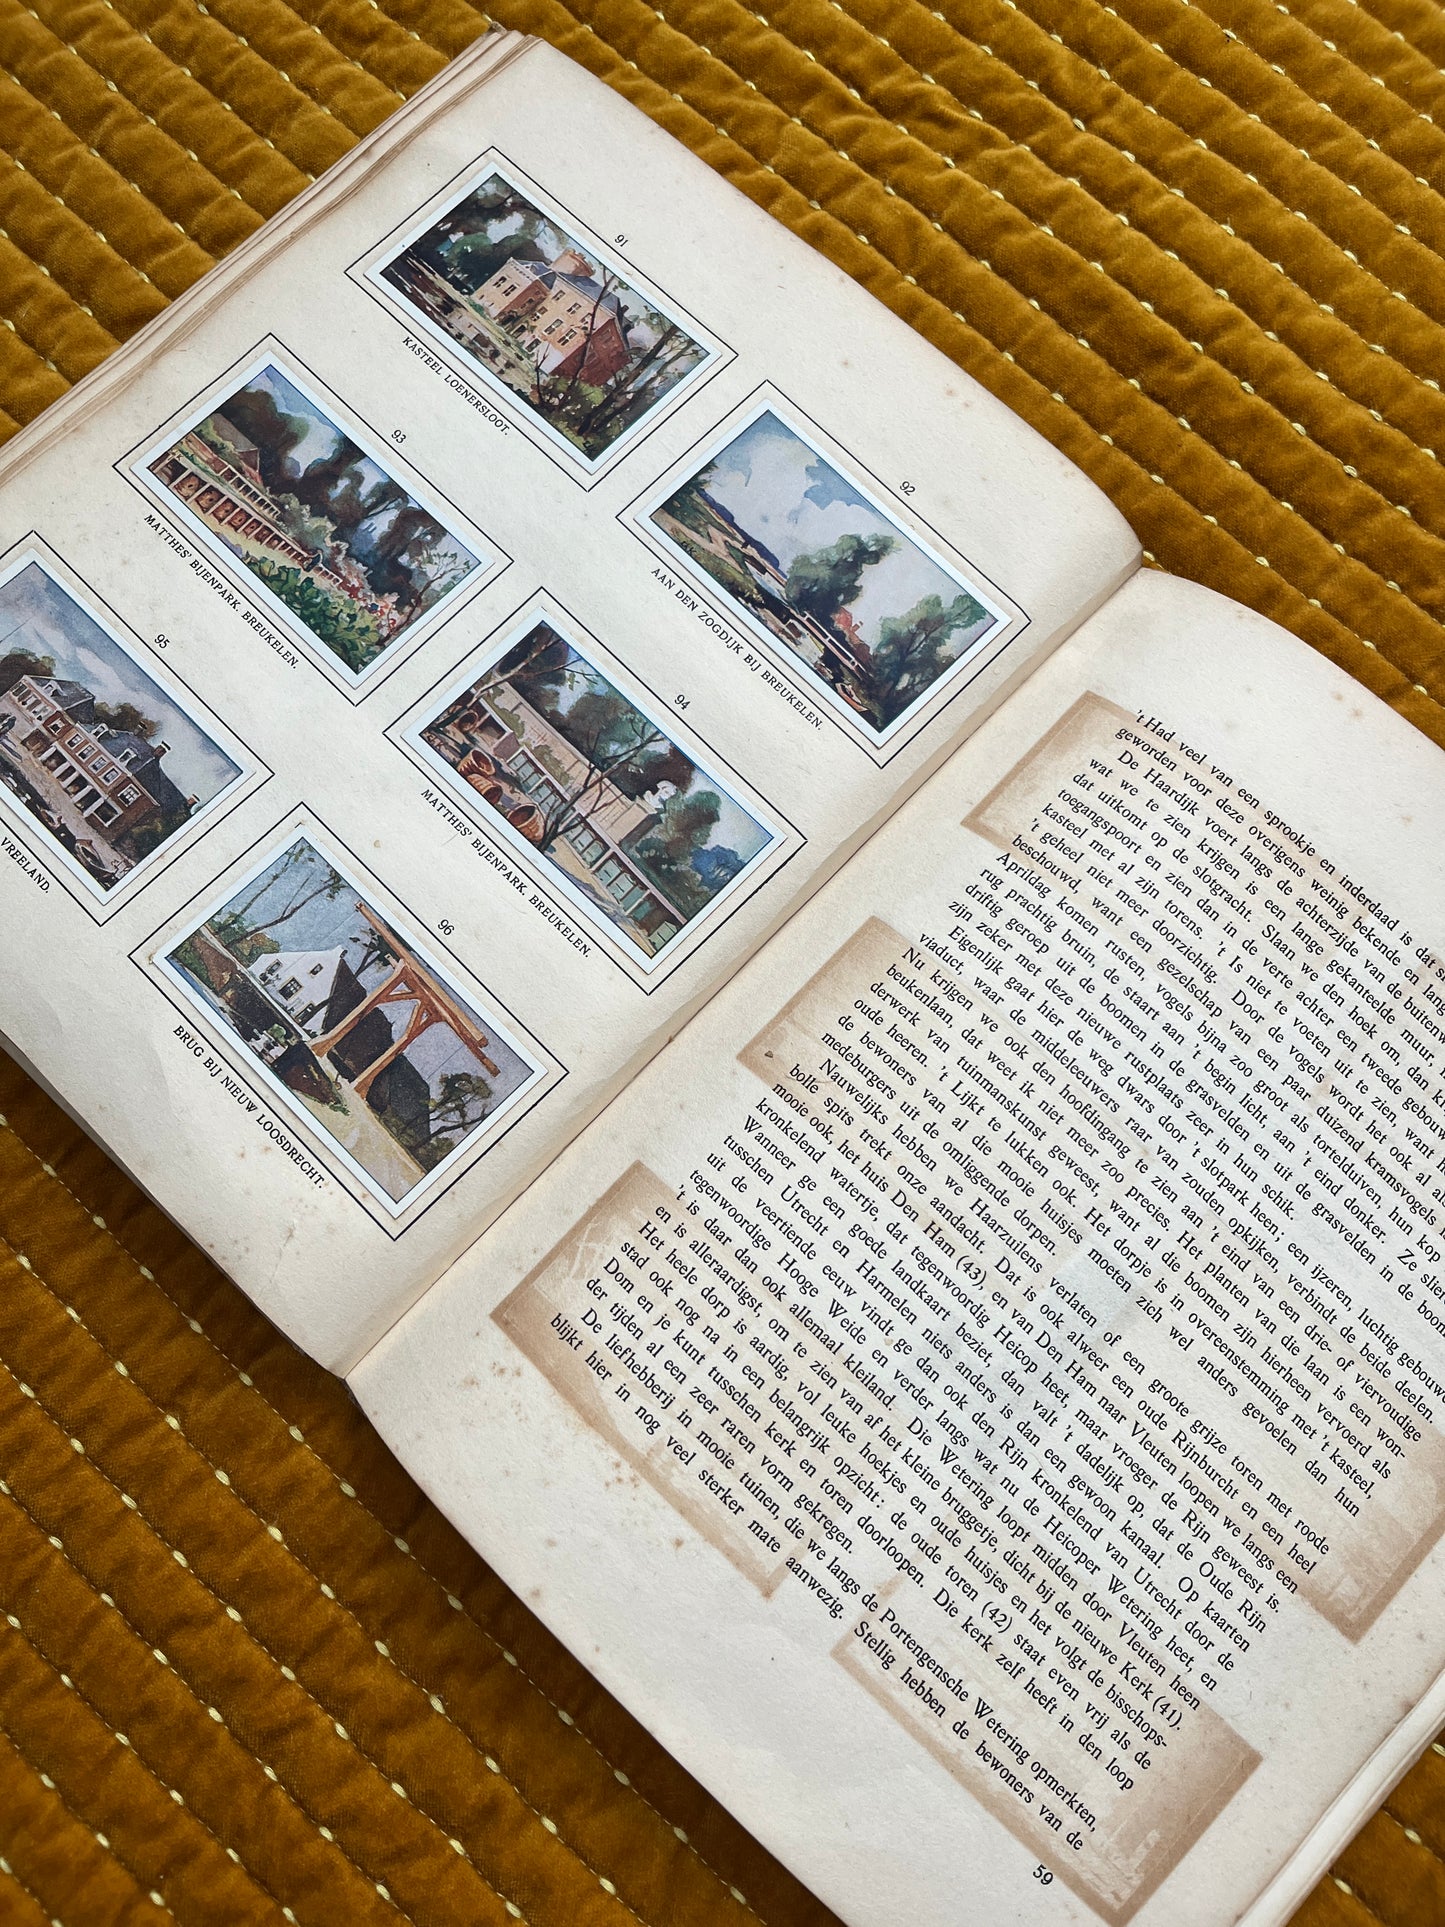 91
KASTEEL LOENERSLOOT.
92
AAN DEN ZOGDIJK BIJ BREUKELEN.
93
MATTHES' BIJENPARK. BREUKELEN.
94
MATTHES' BIJENPARK, BREUKELEN.
95
VREELAND.
96
BRUG BIJ NIEUW LOOSDRECHT.
't Had veel van een sprookje en inderdaad is dat
geworden voor deze overigens weinig bekende en
De Haardijk voert langs de achterzijde van de
wat we te zien krijgen is een lange gekanteelde muur,
dat uitkomt op de slotgracht. Slaan we den hoek om, dan
toegangspoort en zien dan in de verte achter een tweede
kasteel met al zijn torens. 't Is niet te voeten uit te zien, want
't geheel niet meer doorzichtig. Door de vogels wordt het ook al
beschouwd, want een gezelschap van een paar duizend kramsvogels
Aprildag komen rusten, vogels bijna zoo groot als tortelduiven, hun kop
rug prachtig bruin, de staart aan 't begin licht, aan 't eind donker. Ze
driftig geroep uit de boomen in de grasvelden en uit de grasvelden in de
zijn zeker met deze nieuwe rustplaats zeer in hun schik.
Eigenlijk gaat hier de weg dwars door 't slotpark heen; een ijzeren, luchtig
viaduct, waar de middeleeuwers raar van zouden opkijken, verbindt de beide deelen.
Nu krijgen we ook den hoofdingang te zien aan 't eind van een drie- of viervoudige
beukenlaan, dat weet ik niet meer zoo precies. Het planten van die laan is een won-
derwerk van tuinmanskunst geweest, want al die boomen zijn hierheen vervoerd als
oude heeren. 't Lijkt te lukken ook. Het dorpje is in overeenstemming met 't kasteel,
de bewoners van al die mooie huisjes moeten zich wel anders gevoelen dan hun
medeburgers uit de omliggende dorpen.
Nauwelijks hebben we Haarzuilens verlaten of een groote grijze toren met roode
bolle spits trekt onze aandacht. Dat is ook alweer een oude Rijnburcht en een heel
mooie ook, het huis Den Ham (43), en van Den Ham naar Vleuten loopen we langs een
kronkelend watertje, dat tegenwoordig Heicop heet, maar vroeger de Rijn geweest is.
Wanneer ge een goede landkaart beziet, dan valt 't dadelijk op, dat de Oude Rijn
tusschen Utrecht en Harmelen niets anders is dan een gewoon kanaal. Op kaarten
uit de veertiende eeuw vindt ge dan ook den Rijn kronkelend van Utrecht door de
tegenwoordige Hooge Weide en verder langs wat nu de Heicoper Wetering heet, en
't is daar dan ook allemaal kleiland. Die Wetering loopt midden door Vleuten heen
en is alleraardigst, om te zien van af het kleine bruggetje, dicht bij de nieuwe Kerk (41).
Het heele dorp is aardig, vol leuke hoekjes en oude huisjes en het volgt de bisschops-
stad ook nog na in een belangrijk opzicht: de oude toren (42) staat even vrij als de
Dom en je kunt tusschen kerk en toren doorloopen. Die kerk zelf heeft in den loop
der tijden al een zeer raren vorm gekregen.
De liefhebberij in mooie tuinen, die we langs de Portengensche Wetering opmerkten,
blijkt hier in nog veel sterker mate aanwezig. Stellig hebben de bewoners van de
59